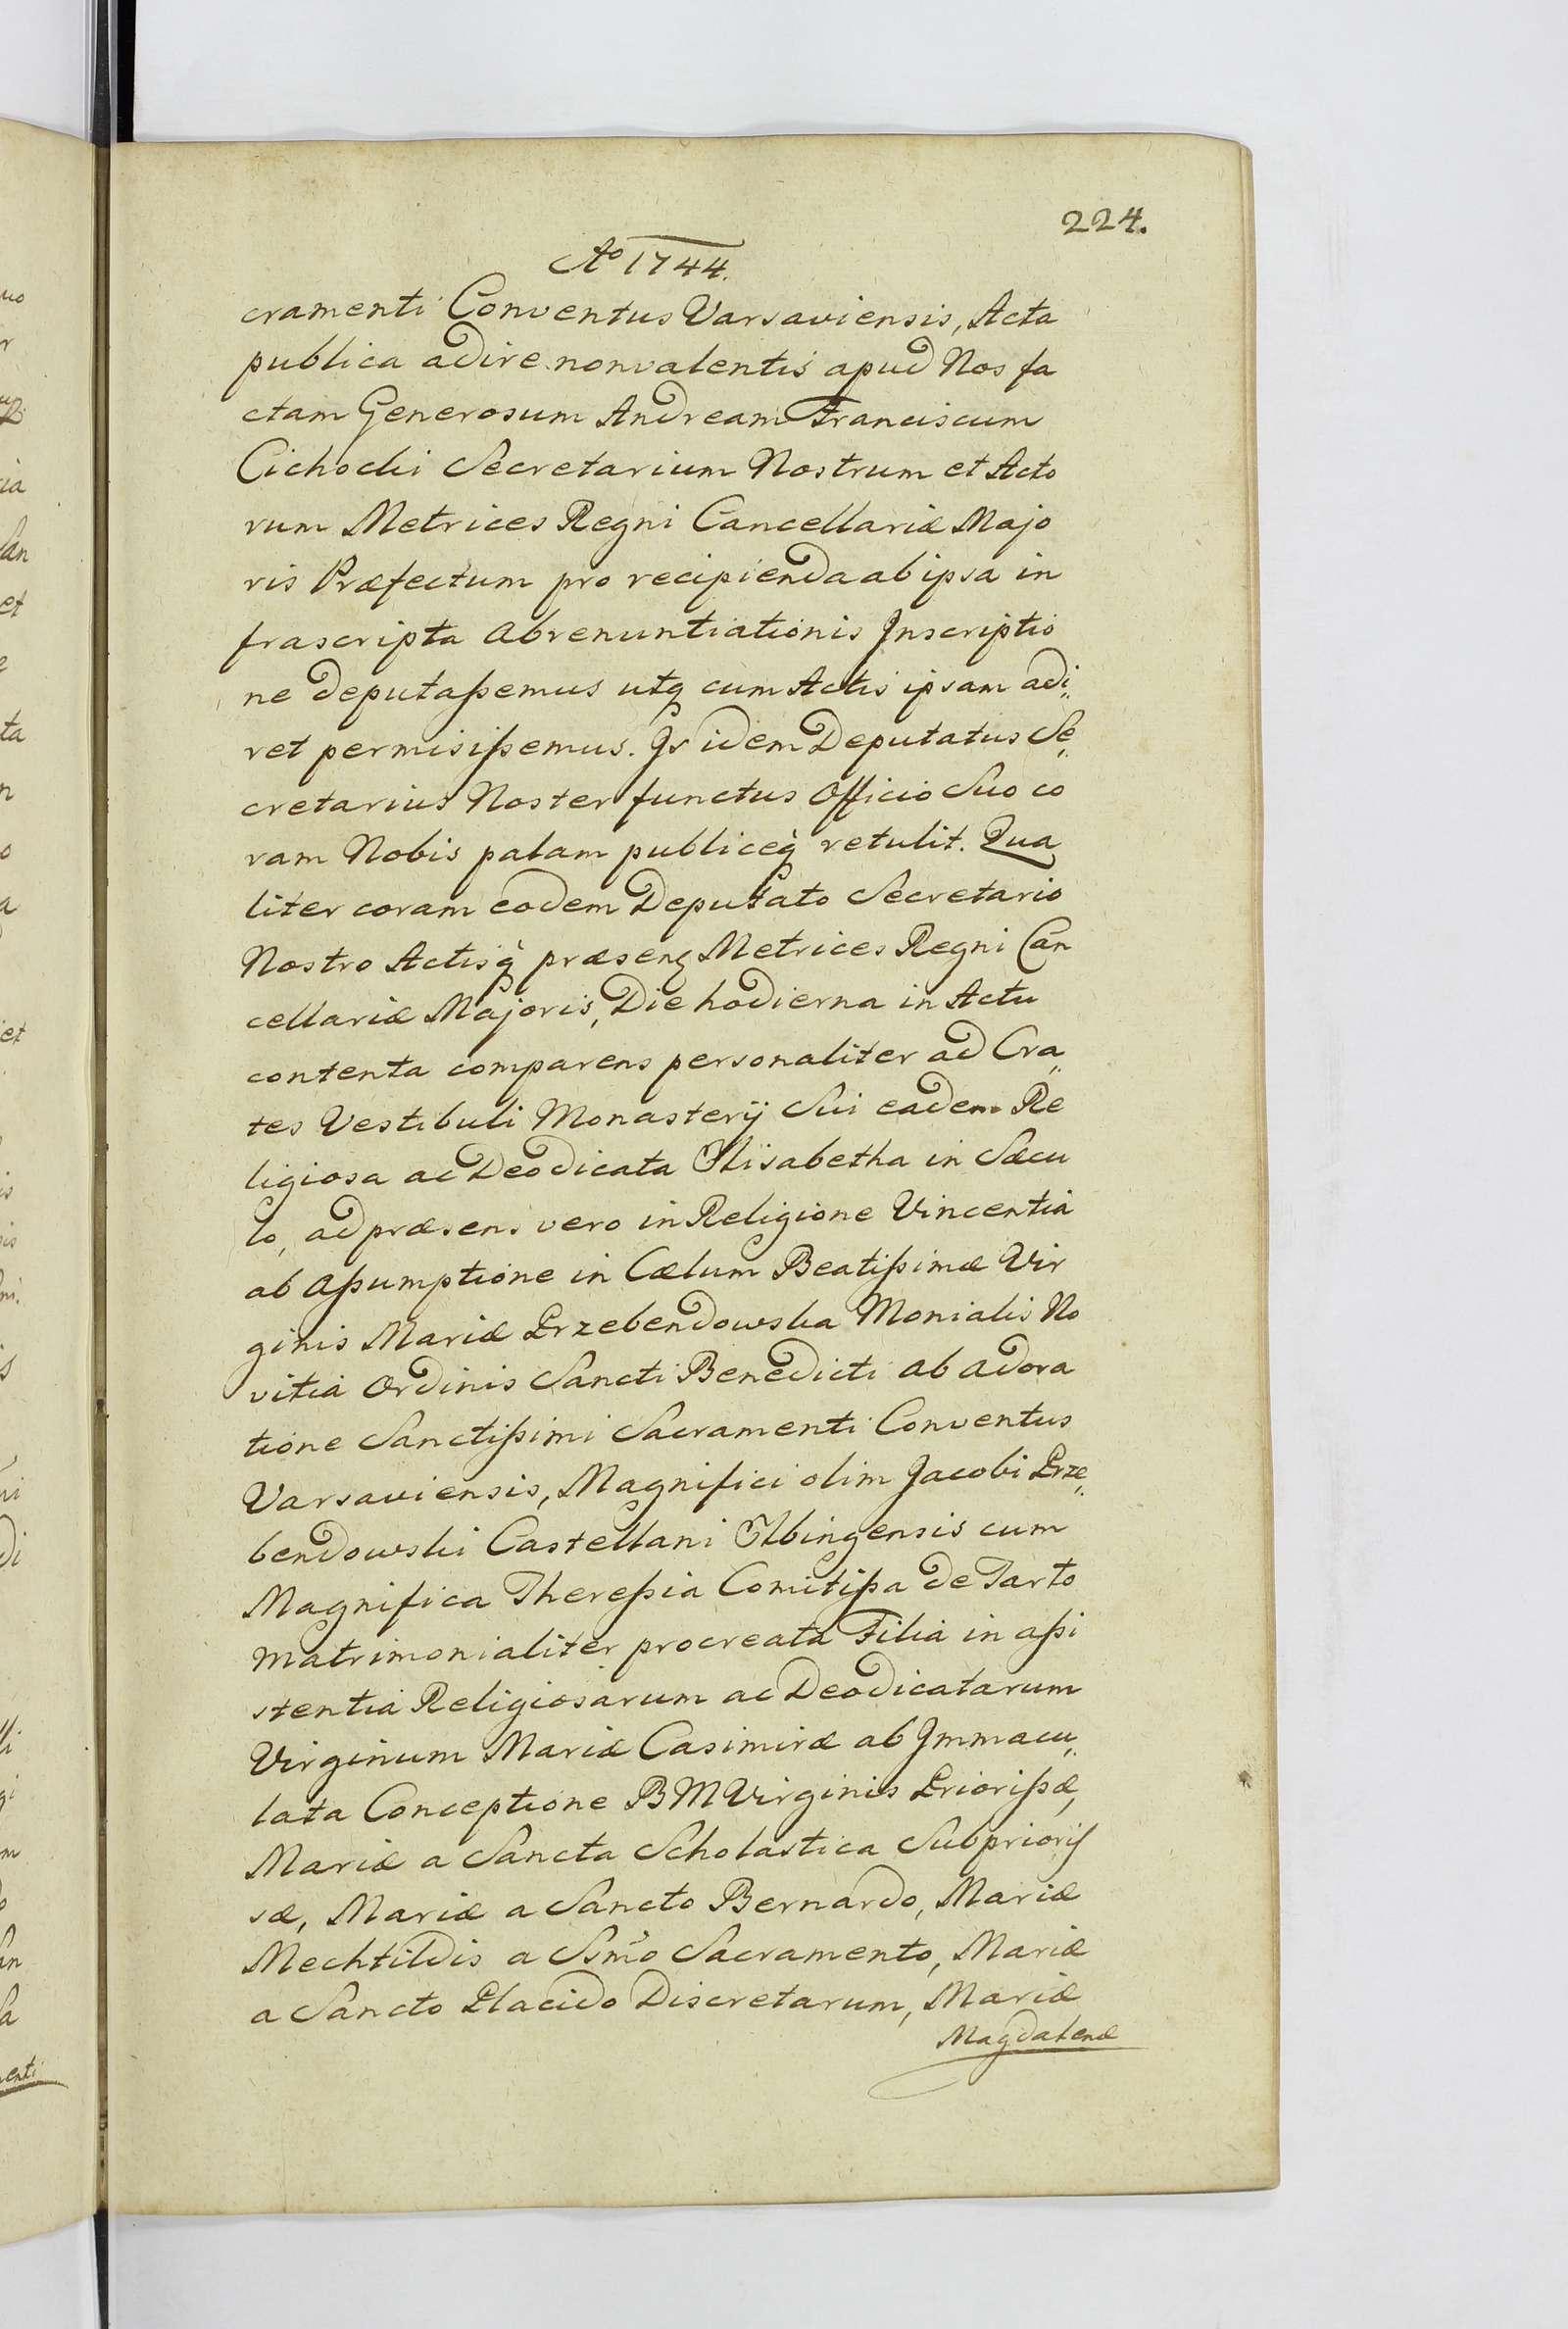 224.
Aº 1744.
cramenti Conventus Varsaviensis, Acta
publica adire nonvalentis apud Nos fa
ctam Generosum Andream Franciscum
Cichocki Secretarium Nostrum et Acto
rum Metrices Regni Cancellariæ Majo
ris Præfectum pro recipienda ab ipsa in
frascripta Abrenuntiationis Inscriptio
ne deputaßemus utq cum Actis ipsam adi„
ret permisißemus. Is idem Deputatus Se„
cretarius Noster functus Officio Suo co
ram Nobis palam publiceq̀ retulit. Qua
liter coram eodem Deputato Secretario
Nostro Actisq̀ præsenq Metrices Regni Can
cellariæ Majoris, Die hodierna in Actu
contenta comparens personaliter ad Cra„
tes Vestibuli Monasterÿ Sui eadem Re
ligiosa ac Deodicata Elisabetha in Sæcu
lo, ad præsens vero in Religione Vincentia
ab Aßumptione in Cælum Beatißimæ Vir
ginis Mariæ Przebendowska Monialis No
vitia Ordinis Sancti Benedicti ab adora
tione Sanctißimi Sacramenti Conventus
Varsaviensis, Magnifici olim Jacobi Prze„
bendowski Castellani Elbingensis cum
Magnifica Thereßia Comitißa de Tarto
Matrimonialiter procreata Filia in aßi
stentia Religiosarum ac Deodicatarum
Virginum Mariæ Casimiræ ab Immacu„
lata Conceptione BMVirginis Priorißæ,
Mariæ a Sancta Scholastica Subprioris
sæ, Mariæ a Sancto Bernardo, Mariæ
Mechtildis a Ssmo Sacramento, Mariæ
a Sancto Placido Discretarum, Mariæ
Magdalenæ